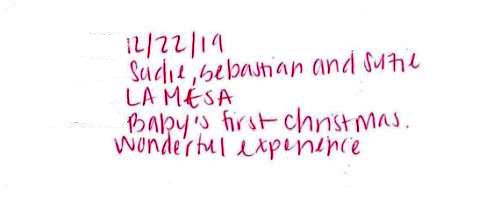 12/22/19
Sadie, Sebastian and Suzie
LA MESA
Baby's first christmas.
Wonderful experience